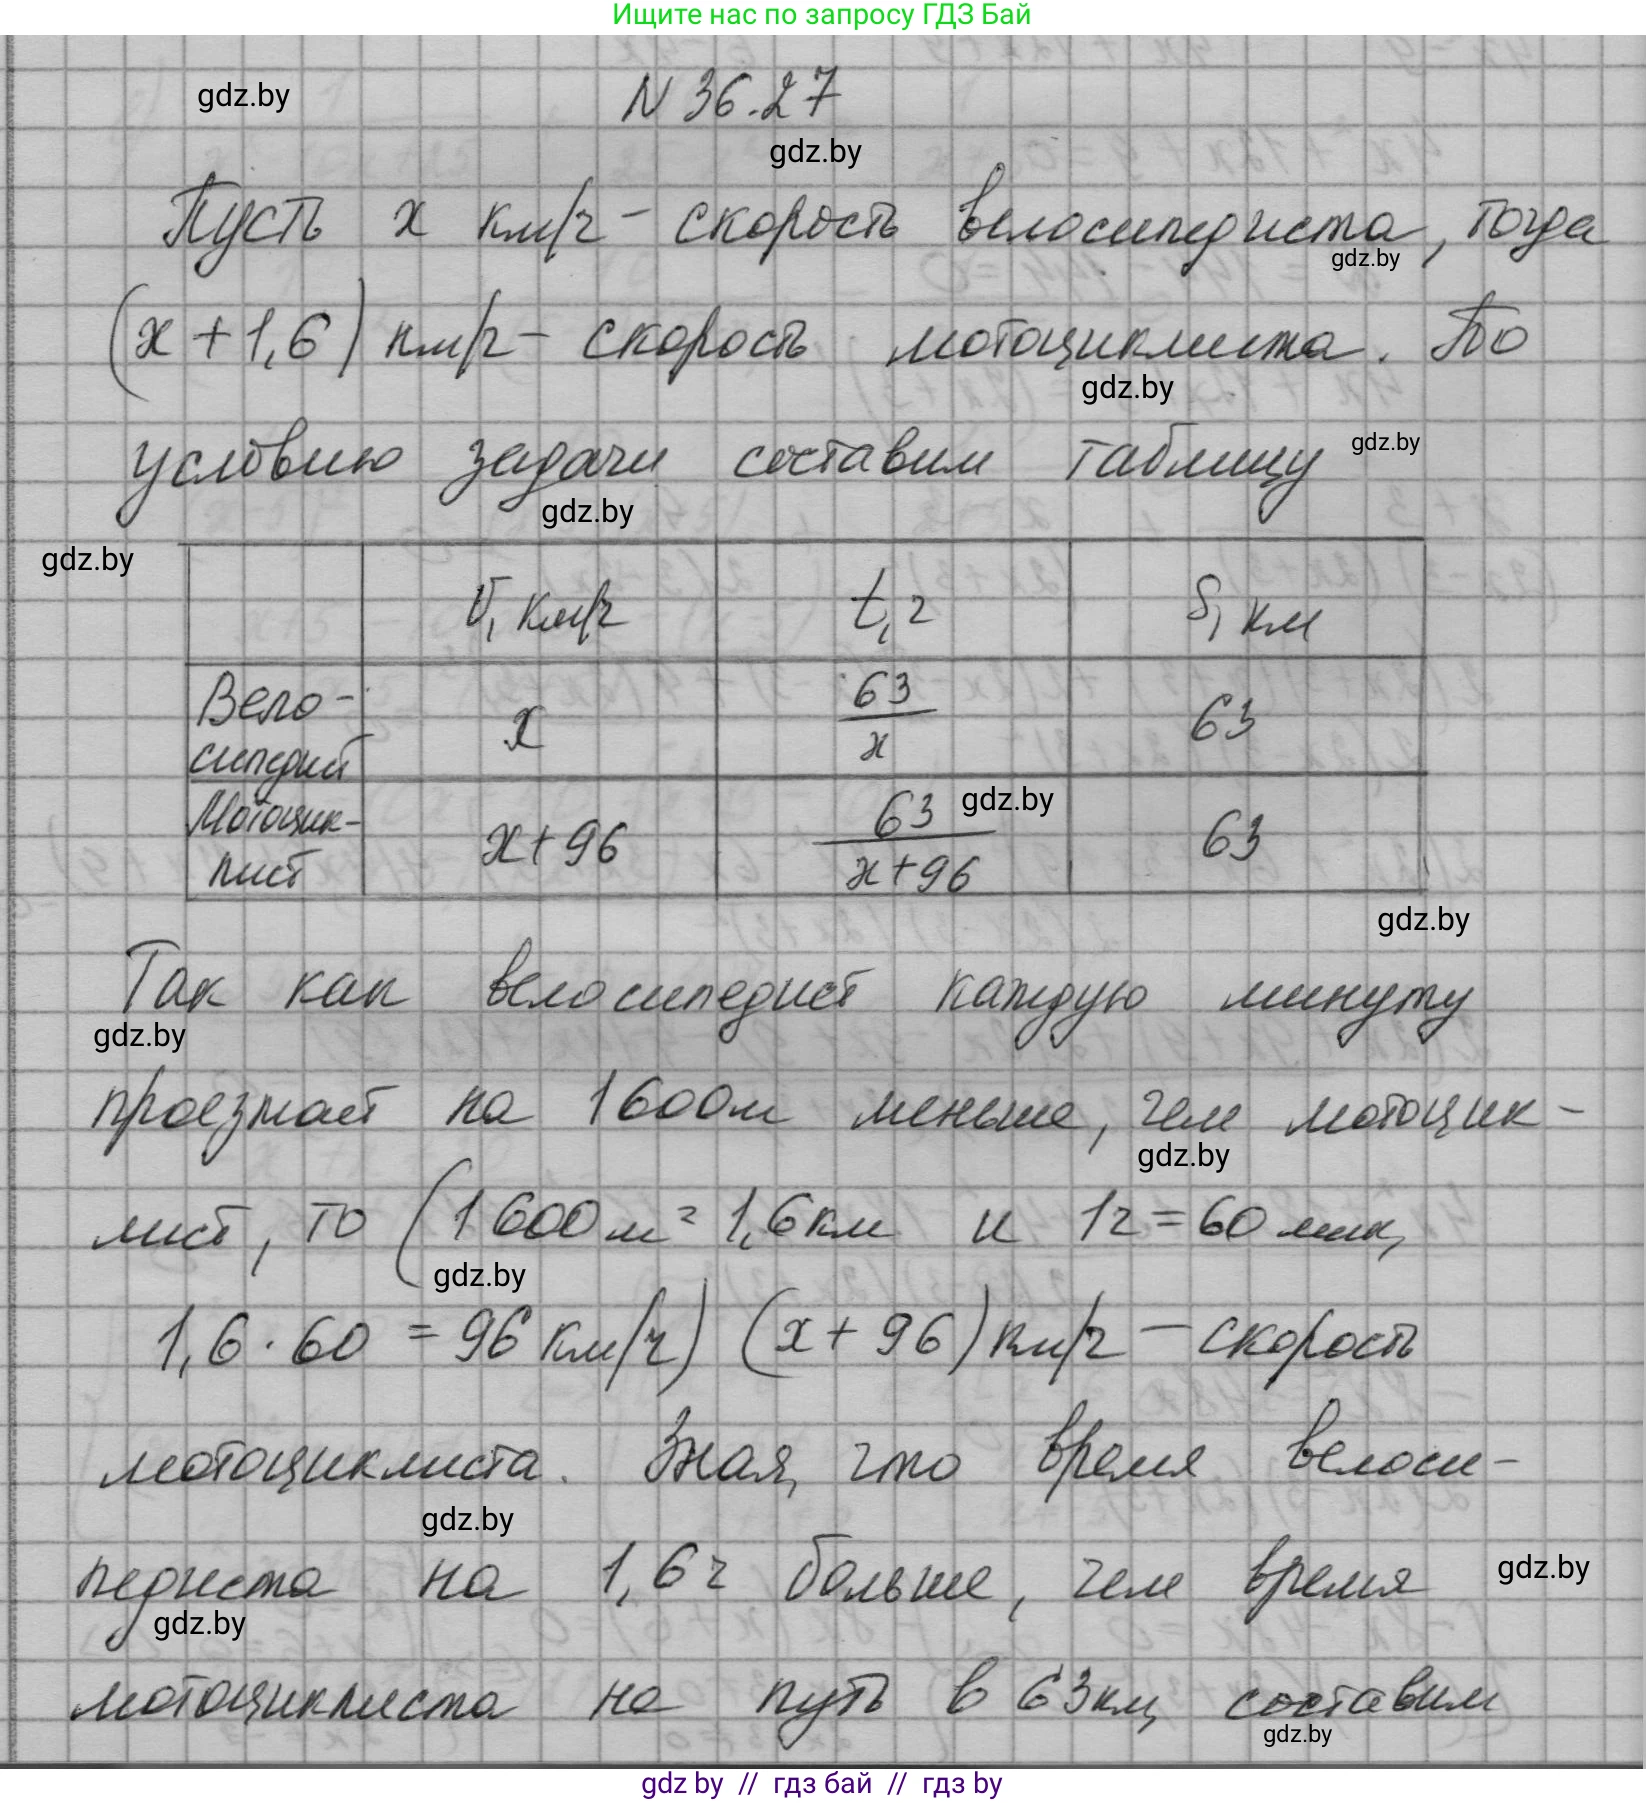 Ищите нас по запросу ГДЗ Бай
gdz.by
N 36.27
gdz.by
Пусть x км/ч - скорость велосипедиста, тогда
gdz.by
(x + 1,6) км/ч - скорость мотоциклиста. По
gdz.by
условию задачи составим таблицу
gdz.by
gdz.by
gdz.by
V, км/ч t, ч S, км
Вело-
сипедист x 63/x 63
gdz.by
Мотоцик-
лист x + 96 63/(x + 96) 63
gdz.by
Так как велосипедист каждую минуту
gdz.by
проезжает на 1600м меньше, чем мотоцик-
gdz.by
лист, то (1600м = 1,6км и 1ч = 60 мин,
gdz.by
1,6 · 60 = 96 км/ч) (x + 96) км/ч - скорость
мотоциклиста. Зная, что время велоси-
gdz.by
педиста на 1,6ч больше, чем время
gdz.by
gdz.by
мотоциклиста на путь в 63км, составим
gdz.by
gdz by // гдз бай // гдз by